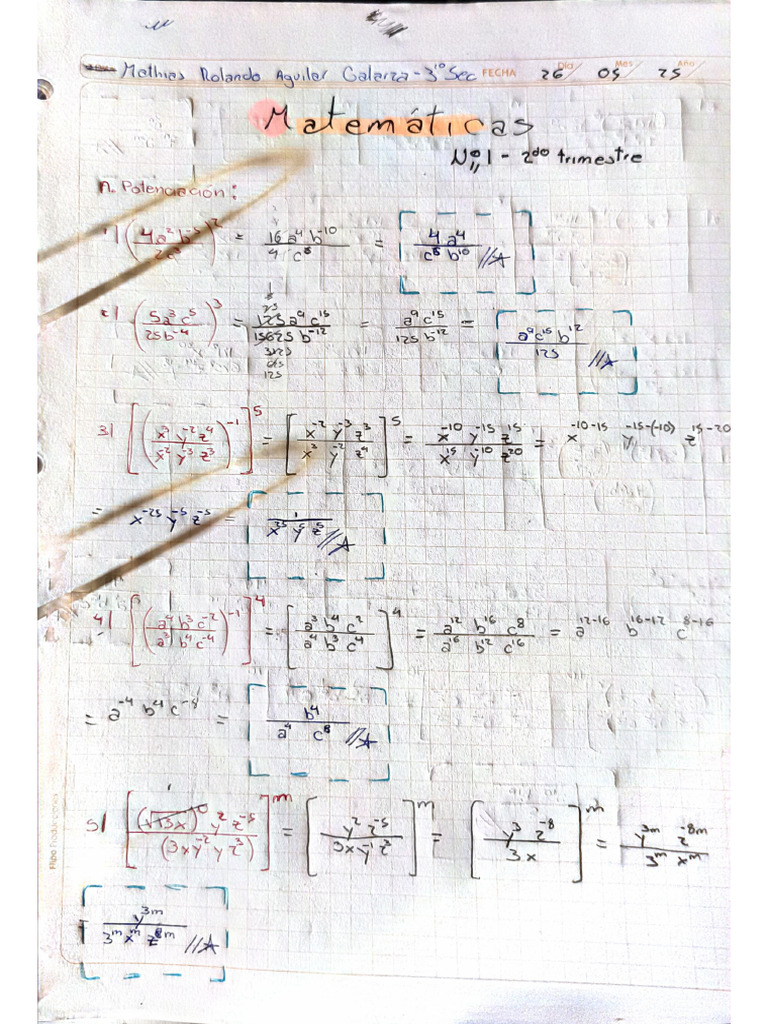 Mathias Rolando Aguilar Galarza - 3ro Sec FECHA Día 26/ Mes 05/ Año 25
Matemáticas
Nº 1 - 2do trimestre
A. Potenciación:
1) (4a² b⁻⁵ / 2c³)² = 16 a⁴ b⁻¹⁰ / 4 c⁶ = 4 a⁴ / c⁶ b¹⁰ //
2) (5a³ c⁵ / 25b⁻⁴)³ = 125 a⁹ c¹⁵ / 15625 b⁻¹² = a⁹ c¹⁵ / 125 b⁻¹² = a⁹ c¹⁵ b¹² / 125 //
25
3125
625
125
3) [(x³ y⁻² z⁴ / x⁻² y⁻³ z³)⁻¹]⁵ = [x⁻² y⁻³ z³ / x³ y⁻² z⁴]⁵ = x⁻¹⁰ y⁻¹⁵ z¹⁵ / x¹⁵ y⁻¹⁰ z²⁰ = x⁻¹⁰⁻¹⁵ y⁻¹⁵⁻⁽⁻¹⁰⁾ z¹⁵⁻²⁰
= x⁻²⁵ y⁻⁵ z⁻⁵ = 1 / x²⁵ y⁵ z⁵ //
4) [(a⁴ b³ c⁻² / a³ b⁴ c⁻⁴)⁻¹]⁴ = [a³ b⁴ c² / a⁴ b³ c⁴]⁴ = a¹² b¹⁶ c⁸ / a¹⁶ b¹² c¹⁶ = a¹²⁻¹⁶ b¹⁶⁻¹² c⁸⁻¹⁶
= a⁻⁴ b⁴ c⁻⁸ = b⁴ / a⁴ c⁸ //
5) [(√15x)⁰ y² z⁻⁵ / (3xy⁻² y z³)]ᵐ = [y² z⁻⁵ / 3xy⁻¹ z³]ᵐ = [y³ z⁻⁸ / 3x]ᵐ = y³ᵐ z⁻⁸ᵐ / 3ᵐ xᵐ
= y³ᵐ / 3ᵐ xᵐ z⁸ᵐ //